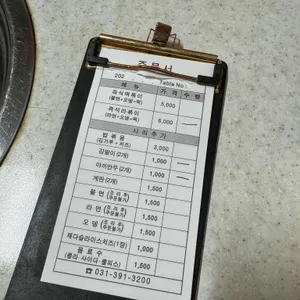 주문서
202 Table No :
메 뉴 가 격 수 량
즉석떡볶이 5,000
(쫄면+오뎅+떡)
즉석라볶이 6,000
(라면+오뎅+떡)
사 리 추 가
밥 볶 음 3,000
(김가루 + 치즈)
김말이 (2개) 1,000
야끼만두 (2개) 1,000
계란 (2개) 1,500
쫄 면 (조 리 후 주문불가) 1,500
라 면 (조 리 후 주문불가) 1,500
오 뎅 (조 리 후 주문불가) 1,500
체다슬라이스치즈(1장) 1,000
음 료 수 1,500
(콜라·사이다·쿨피스)
☎031-391-3200